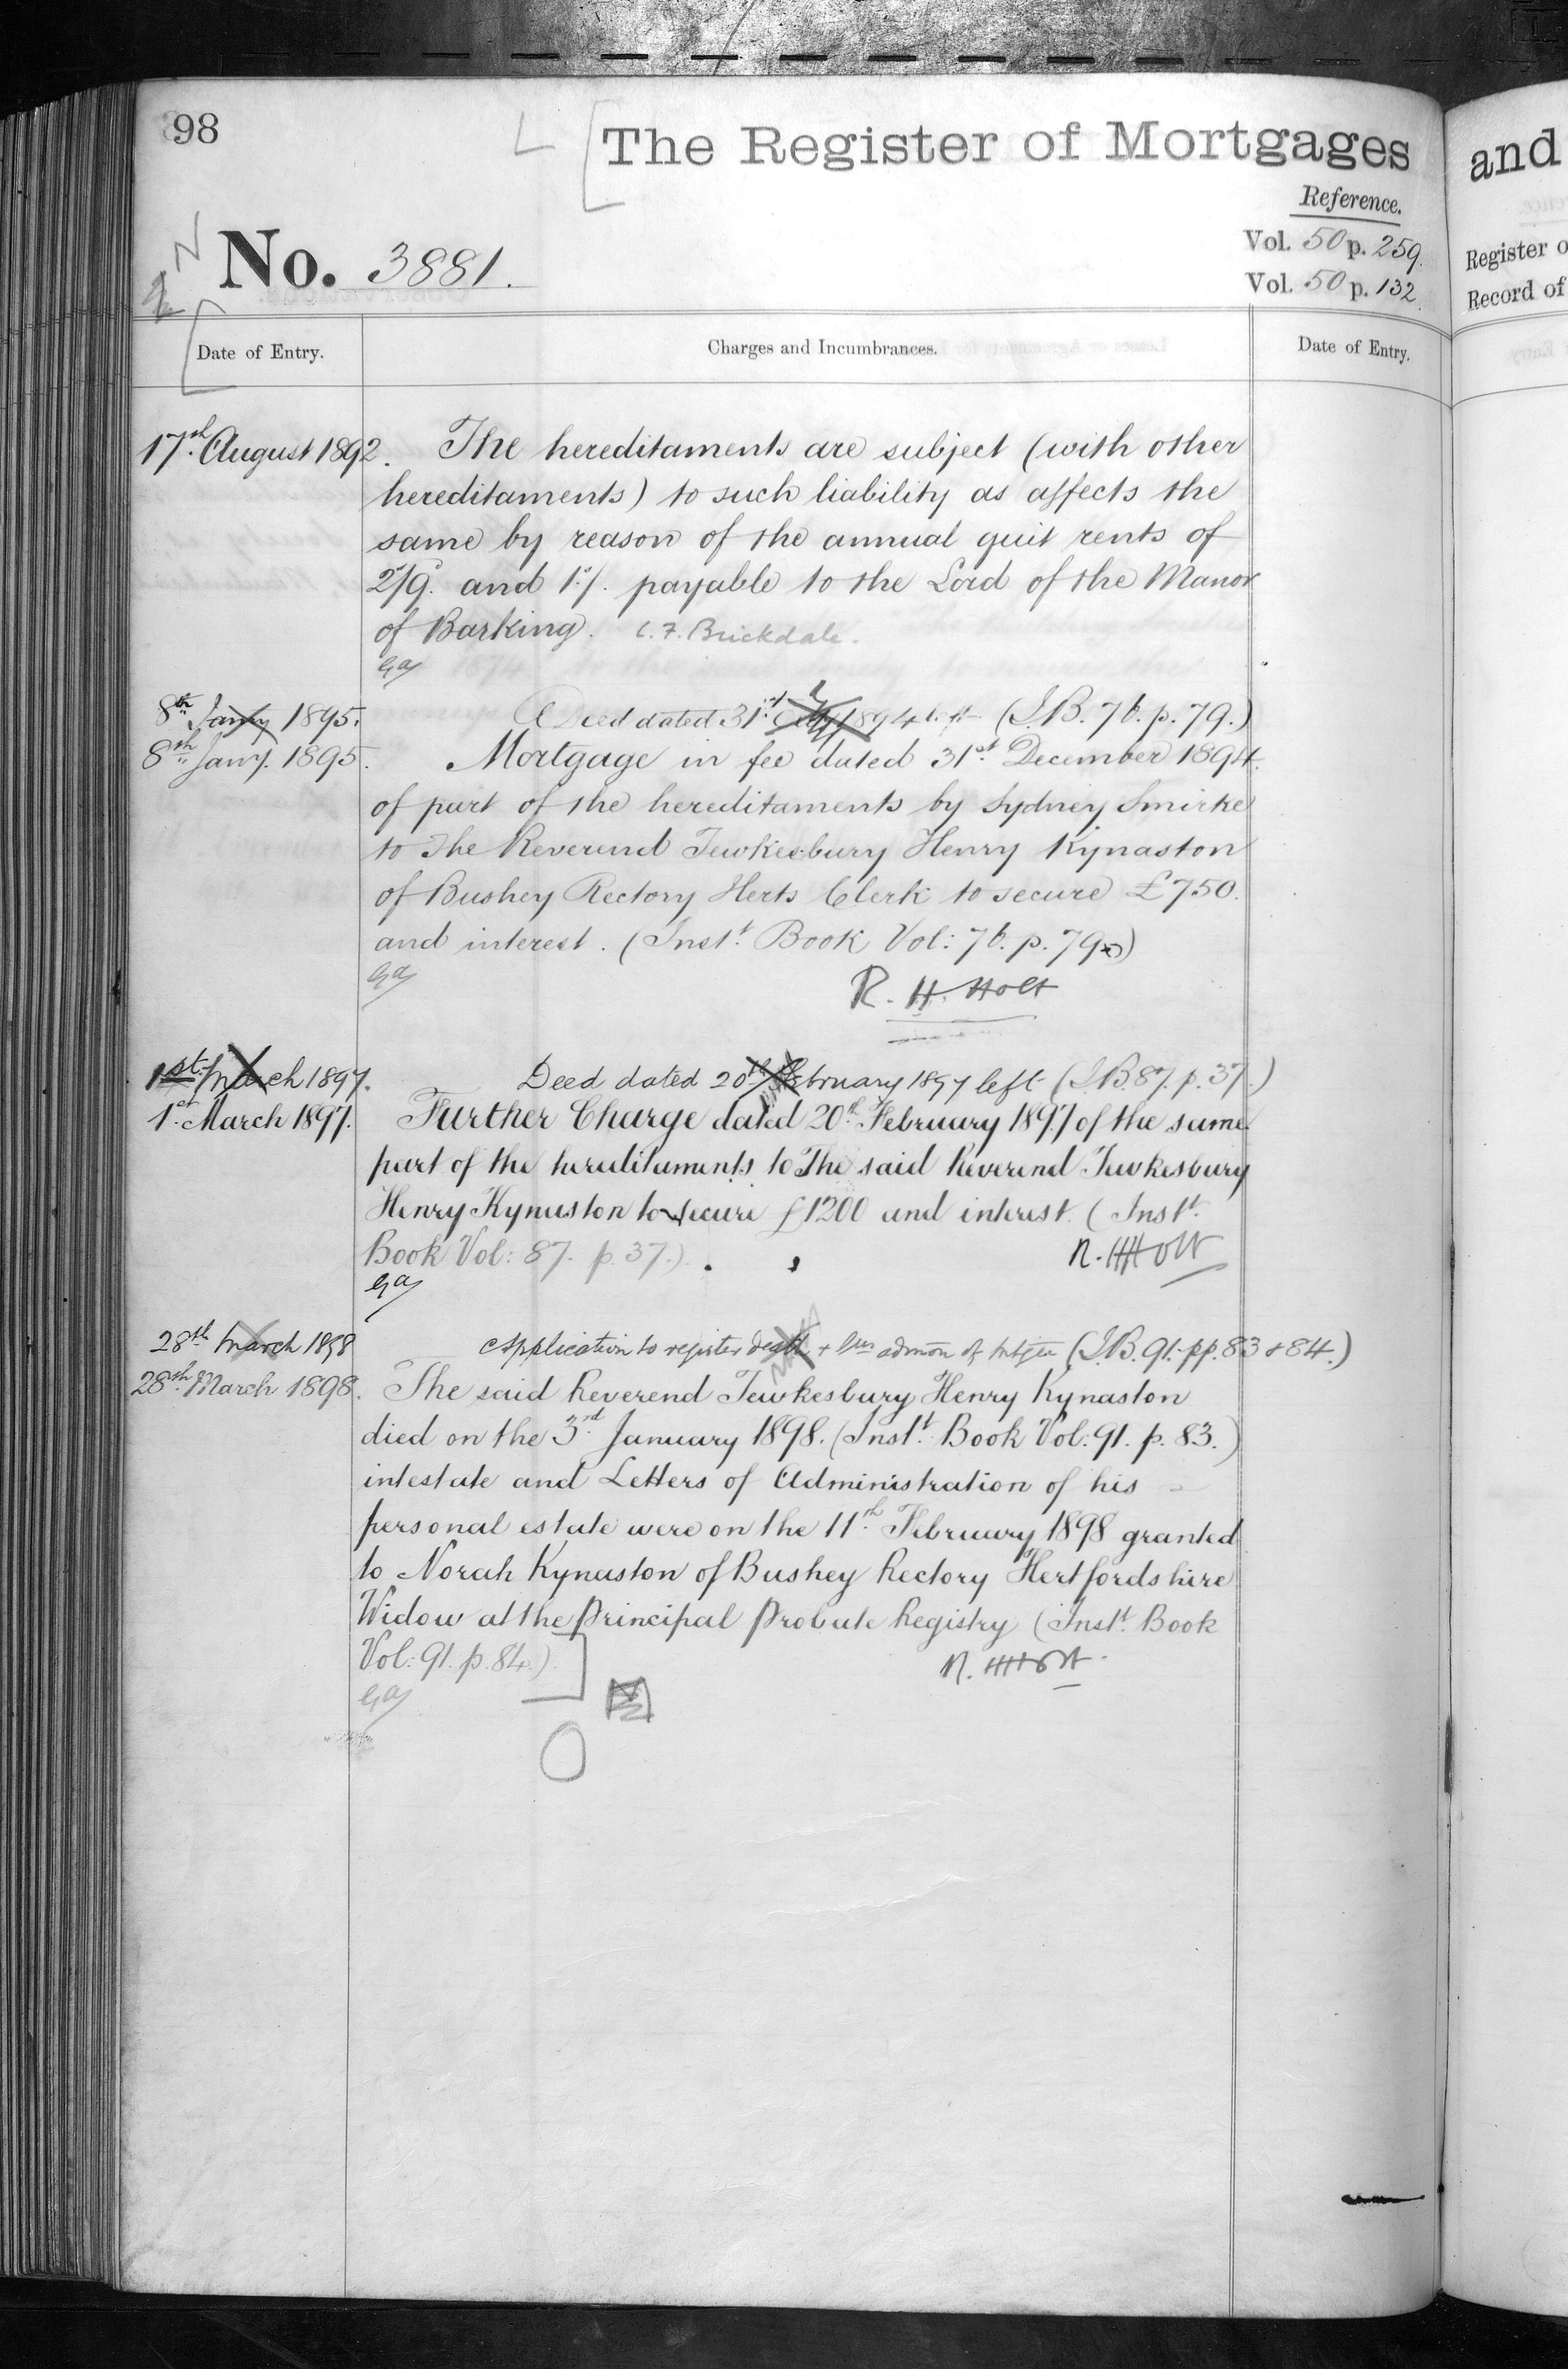 98
The Register of Mortgages
and
Reference.
Vol. 50 p. 259.
Vol. 50 p. 132.
Register o
Record of
No. 3881.
Date of Entry.
Charges and Incumbrances.
Date of Entry.
17th August 1892. The hereditaments are subject (with other
hereditaments) to such liability as affects the
same by reason of the annual quit rents of
2s/9d. and 1s/. payable to the Lord of the Manor
of Barking. C. F. Brickdale.
8th Jany 1895. A Deed dated 31st 1894 left (I.B. 76. p. 79.)
8th Jany. 1895. Mortgage in fee dated 31st December 1894.
of part of the hereditaments by Sydney Smirke
to The Reverend Tewkesbury Henry Kynaston
of Bushey Rectory Herts Clerk to secure £750.
and interest. (Inst. Book Vol: 76. p. 79.)
R. H. Holt
1st. March 1897. Deed dated 20th February 1897 left (I.B. 87. p. 37.)
1st March 1897. Further Charge dated 20th February 1897 of the same
part of the hereditaments to The said Reverend Tewkesbury
Henry Kynaston to secure £1200 and interest. (Inst.
Book Vol: 87. p. 37.).
R. H Holt
28th March 1898 Application to register death + admon of mtgee (I.B. 91. pp. 83 & 84.)
28th March 1898. The said Reverend Tewkesbury Henry Kynaston
died on the 3rd January 1898. (Inst. Book Vol: 91. p. 83.)
intestate and Letters of Administration of his
personal estate were on the 11th February 1898 granted
to Norah Kynaston of Bushey Rectory Hertfordshire
Widow at the Principal Probate Registry (Inst. Book
Vol: 91. p. 84.)
R. H Holt.